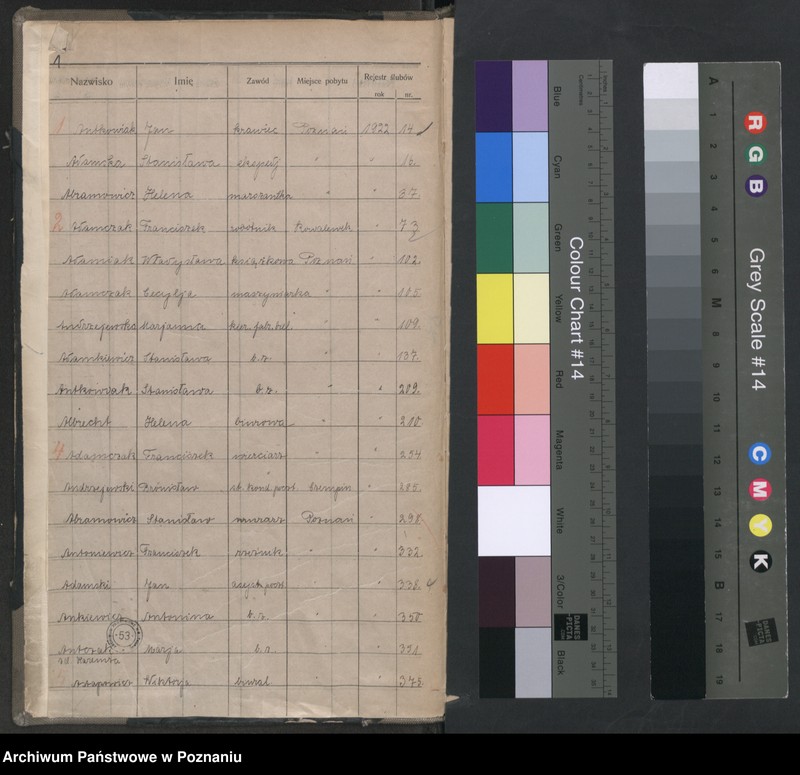 1
Nazwisko Imię Zawód Miejsce pobytu Rejestr ślubów
rok nr.
1 Antkowiak Jan krawiec Poznań 1922 14
Adamska Stanisława ekspedj " "
Abramowicz Helena " " 37.
2 Adamczak Franciszek woźnik Kowalewek " 73
Adamiak Władysława książkowa Poznań " 102.
Adamczak Cecylja " "
Andrzejewska Marjanna " " 109.
Adamkiewicz Stanisława b.z. " " 137.
Antkowiak Stanisława b.z. " " 209.
Albrecht Helena biurowa " " 210
4 Adamczak Franciszek " " 254
Andrzejewski Bronisław Szempin " 285.
Abramowicz Stanisław murarz Poznań " 298
Antoniewicz Franciszek rzeźnik " " 332.
Adamski Jan " " 338. 4
Ankiewicz Antonina b.z. " " 358
Antczak Marja b.z. " " 351
Wiktorja " 378.
53
Blue
Cyan
Green
Yellow
Red
Magenta
White
3/Color
Black
Colour Chart #14
Centimetres
Inches
DANES
PICTA
.COM
A
1
2
3
4
5
6
M
8
9
10
11
12
13
14
15
B
17
18
19
R
G
B
Grey Scale #14
C
M
Y
K
DANES
PICTA
.COM
Archiwum Państwowe w Poznaniu